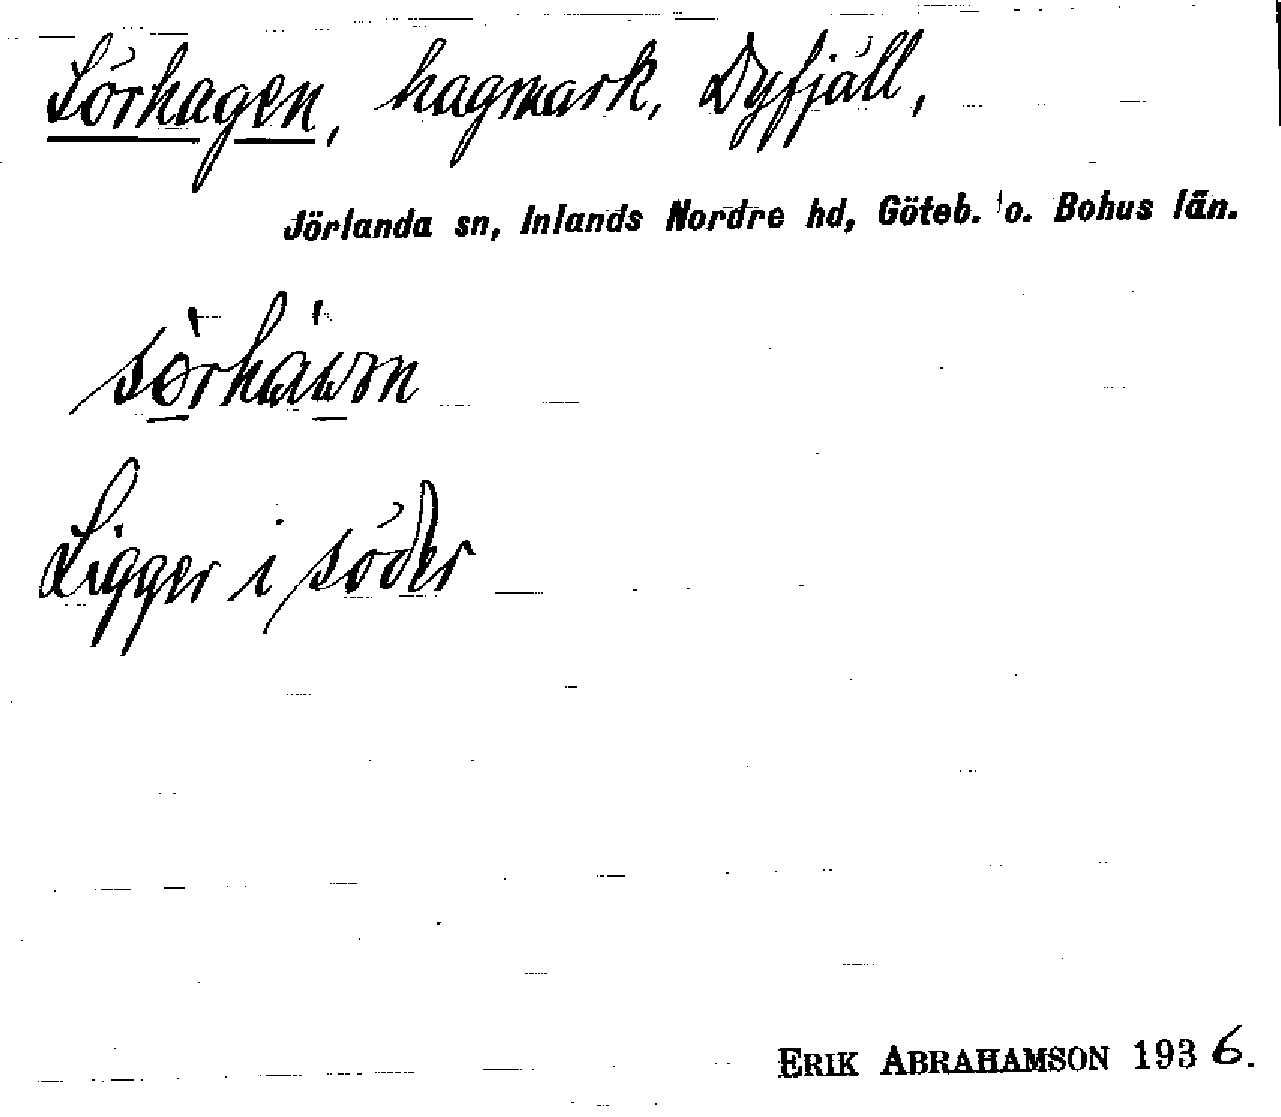 Sörhagen, hagmark, Dyfjäll,
Jörlanda sn, Inlands Nordre hd, Göteb. o. Bohus län.
Ligger i söder
ERIK ABRAHAMSON 1936.